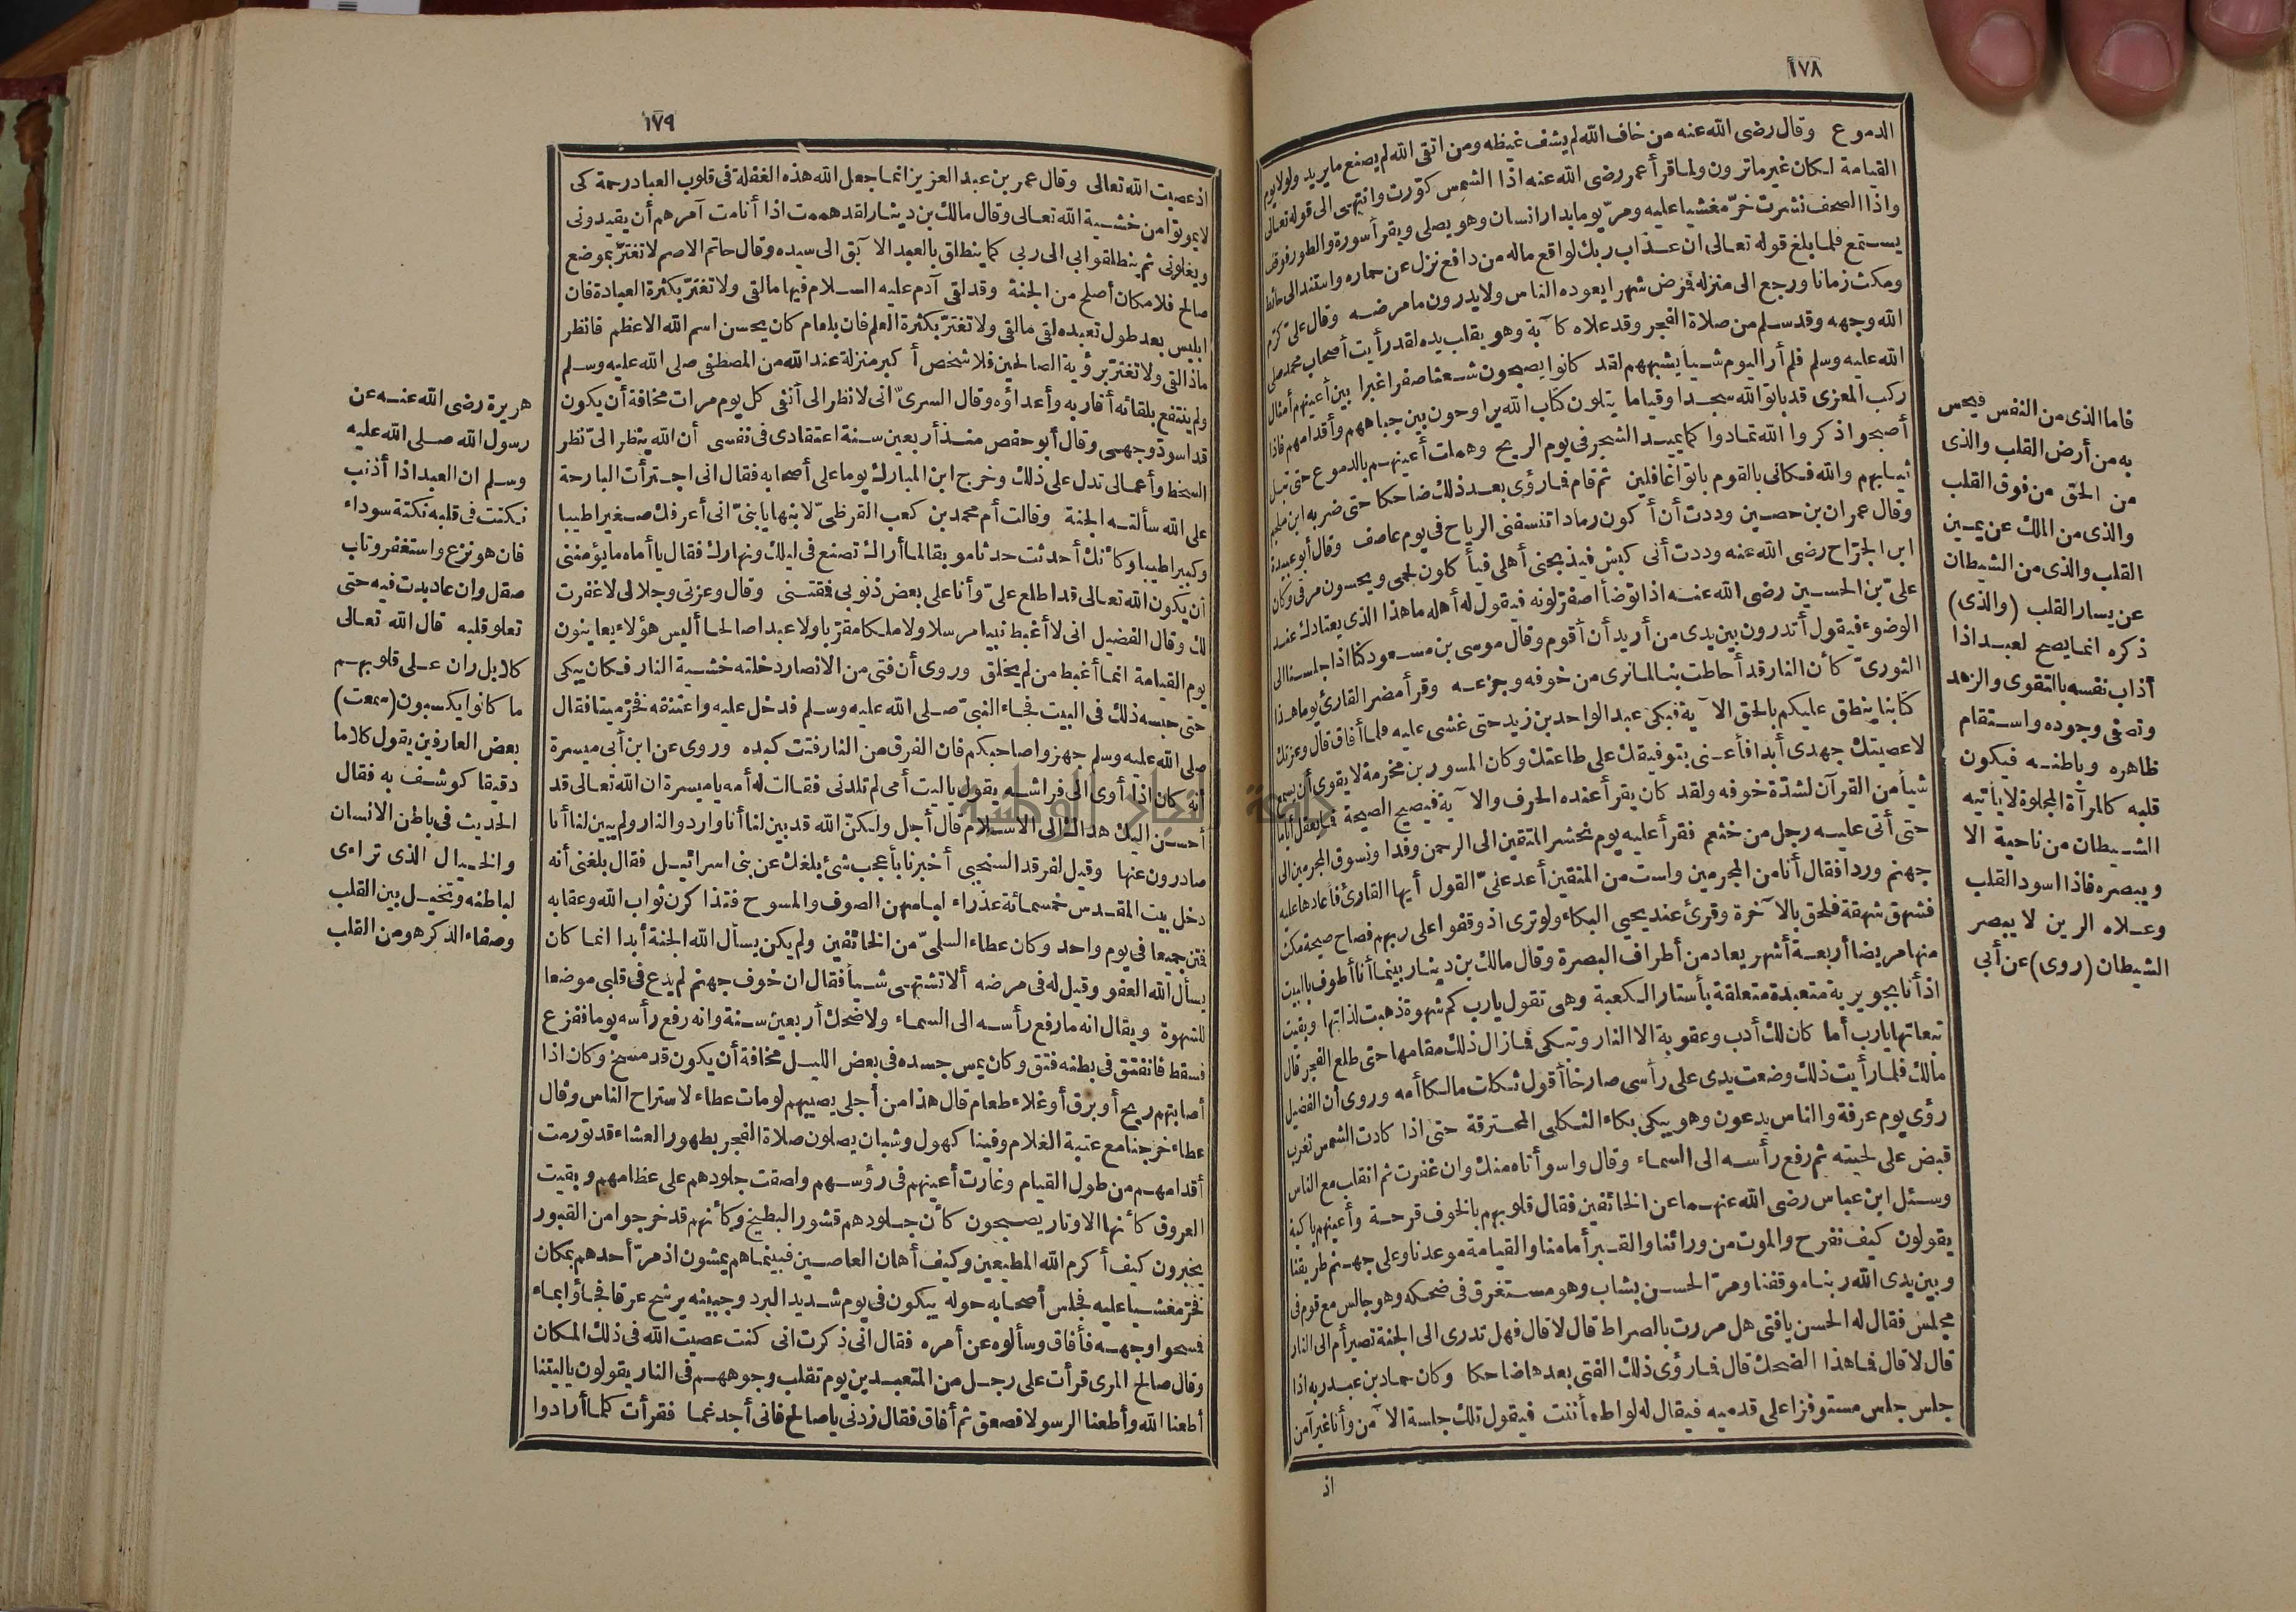 ١٧٨
الدموع وقال رضى الله عنه من خاف الله لم يشف غيظه ومن اتقى الله لم يصنع ما يريد ولولا يوم
القيامة لكان غير ما ترون ولما قرأ عمر رضى الله عنه اذا الشمس كوّرت وانتهى الى قوله تعالى
واذا الصحف نشرت خرّ مغشيا عليه ومرّ يوما بدار انسان وهو يصلى ويقرأ سورة والطور فوقف
يستمع فلما بلغ قوله تعالى ان عذاب ربك لواقع ماله من دافع نزل عن حماره واستند الى حائط
ومكث زمانا ورجع الى منزله فمرض شهرا يعوده الناس ولا يدرون ما مرضه وقال على كرّم
الله وجهه وقد سلم من صلاة الفجر وقد علاه كآبة وهو يقلب يده لقد رأيت أصحاب محمد صلى
الله عليه وسلم فلم أر اليوم شيأ يشبههم لقد كانوا يصبحون شعثا صفرا غبرا بين أعينهم أمثال
ركب المعزى قد باتوا لله سجدا وقياما يتلون كتاب الله يراوحون بين جباههم وأقدامهم فاذا
أصبحوا ذكروا الله تمادوا كما يميد الشجر فى يوم الريح وهملت أعينهم بالدموع حتى تبل
ثيابهم والله فكانى بالقوم باتوا غافلين ثم قام فما رؤى بعد ذلك ضاحكا حتى ضربه ابن ملجم
وقال عمران بن حصين وددت أن أكون رمادا تنسفنى الرياح فى يوم عاصف وقال أبو عبيدة
ابن الجرّاح رضى الله عنه وددت أنى كبش فيذبحنى أهلى فيأكلون لحمى ويحسون مرقى وكان
علىّ بن الحسين رضى الله عنه اذا توضأ اصفرّ لونه فيقول له أهله ما هذا الذى يعتادك عند
الوضوء فيقول أتدرون بين يدى من أريد أن أقوم وقال موسى بن مسعود كنّا اذا جلسنا الى
الثورىّ كأن النار قد أحاطت بنا لما نرى من خوفه وجزعه وقرأ مضر القارئ يوما هذا
كتابنا ينطق عليكم بالحق الآية فبكى عبد الواحد بن زيد حتى غشى عليه فلما أفاق قال وعزتك
لا عصيتك جهدى أبدا فأعنى بتوفيقك على طاعتك وكان المسور بن مخرمة لا يقوى أن يسمع
شيأ من القرآن لشدّة خوفه ولقد كان يقرأ عنده الحرف والآية فيصيح الصيحة فما يعقل أياما
حتى أتى عليه رجل من خثعم فقرأ عليه يوم نحشر المتقين الى الرحمن وفدا ونسوق المجرمين الى
جهنم وردا فقال أنا من المجرمين ولست من المتقين أعد علىّ القول أيها القارئ فأعادها عليه
فشهق شهقة فلحق بالآخرة وقرئ عند يحيى البكاء ولو ترى اذ وقفوا على ربهم فصاح صيحة مكث
منها مريضا أربعة أشهر يعاد من أطراف البصرة وقال مالك بن دينار بينما أنا أطوف بالبيت
اذ أنا بجويرية متعبدة متعلقة بأستار الكعبة وهى تقول يارب كم شهوة ذهبت لذاتها وبقيت
تبعاتها يارب أما كان لك أدب وعقوبة الا النار وتبكى فما زال ذلك مقامها حتى طلع الفجر قال
مالك فلما رأيت ذلك وضعت يدى على رأسى صارخا أقول ثكلت مالكا أمه وروى أن الفضيل
رؤى يوم عرفة والناس يدعون وهو يبكى بكاء الثكلى المحترقة حتى اذا كادت الشمس تغرب
قبض على لحيته ثم رفع رأسه الى السماء وقال واسوأتاه منك وان غفرت ثم انقلب مع الناس
وسئل ابن عباس رضى الله عنهما عن الخائفين فقال قلوبهم بالخوف قرحة وأعينهم باكية
يقولون كيف نفرح والموت من ورائنا والقبر أمامنا والقيامة موعدنا وعلى جهنم طريقنا
وبين يدى الله ربنا موقفنا ومرّ الحسن بشاب وهو مستغرق فى ضحكه وهو جالس مع قوم فى
مجلس فقال له الحسن يافتى هل مررت بالصراط قال لا قال فهل تدرى الى الجنة تصير أم الى النار
قال لا قال فما هذا الضحك قال فما رؤى ذلك الفتى بعدها ضاحكا وكان حماد بن عبد ربه اذا
جلس جلس مستوفزا على قدميه فيقال له لو اطمأننت فيقول تلك جلسة الآمن وأنا غير آمن
اذ
فاما الذى من النفس فيحس
به من أرض القلب والذى
من الحق من فوق القلب
والذى من الملك عن يمين
القلب والذى من الشيطان
عن يسار القلب (والذى)
ذكره انما يصح لعبد اذا
أذاب نفسه بالتقوى والزهد
وتصفى وجوده واستقام
ظاهره وباطنه فيكون
قلبه كالمرآة المجلوة لا يأتيه
الشيطان من ناحية الا
ويبصره فاذا اسود القلب
وعلاه الرين لا يبصر
الشيطان (روى) عن أبى
١٧٩
اذ عصيت الله تعالى وقال عمر بن عبد العزيز انما جعل الله هذه الغفلة فى قلوب العباد رحمة كى
لا يموتوا من خشية الله تعالى وقال مالك بن دينار لقد هممت اذا أنا مت آمرهم أن يقيدونى
ويغلونى ثم ينطلقوا بى الى ربى كما ينطلق بالعبد الآبق الى سيده وقال حاتم الاصم لا تغترّ بموضع
صالح فلا مكان أصلح من الجنة وقد لقى آدم عليه السلام فيها ما لقى ولا تغترّ بكثرة العبادة فان
ابليس بعد طول تعبده لقى ما لقى ولا تغترّ بكثرة العلم فان بلعام كان يحسن اسم الله الاعظم فانظر
ماذا لقى ولا تغترّ برؤية الصالحين فلا شخص أكبر منزلة عند الله من المصطفى صلى الله عليه وسلم
ولم ينتفع بلقائه أقاربه وأعداؤه وقال السرىّ انى لانظر الى أنفى كل يوم مرات مخافة أن يكون
قد اسودّ وجهى وقال أبو حفص منذ أربعين سنة اعتقادى فى نفسى أن الله ينظر الىّ نظر
السخط وأعمالى تدل على ذلك وخرج ابن المبارك يوما على أصحابه فقال انى اجترأت البارحة
على الله سألته الجنة وقالت أم محمد بن كعب القرظىّ لابنها يا بنىّ انى أعرفك صغيرا طيبا
وكبيرا طيبا وكأنك أحدثت حدثا موبقا لما أراك تصنع فى ليلك ونهارك فقال يا أماه ما يؤمننى
أن يكون الله تعالى قد اطلع علىّ وأنا على بعض ذنوبى فمقتنى وقال وعزتى وجلالى لا غفرت
لك وقال الفضيل انى لا أغبط نبيا مرسلا ولا ملكا مقرّبا ولا عبدا صالحا أليس هؤلاء يعاينون
يوم القيامة انما أغبط من لم يخلق وروى أن فتى من الانصار دخلته خشية النار فكان يبكى
حتى حبسه ذلك فى البيت فجاء النبىّ صلى الله عليه وسلم فدخل عليه واعتنقه فخرّ ميتا فقال
صلى الله عليه وسلم جهزوا صاحبكم فان الفرق من النار فتت كبده وروى عن ابن أبى ميسرة
أنه كان اذا أوى الى فراشه يقول ياليت أمى لم تلدنى فقالت له أمه ياميسرة ان الله تعالى قد
أحسن اليك هداك الى الاسلام قال أجل ولكنّ الله قد بين لنا أنا واردو النار ولم يبين لنا أنا
صادرون عنها وقيل لفرقد السنجبى أخبرنا بأعجب شئ بلغك عن بنى اسرائيل فقال بلغنى أنه
دخل بيت المقدس خمسمائة عذراء لباسهن الصوف والمسوح فتذاكرن ثواب الله وعقابه
فمتن جميعا فى يوم واحد وكان عطاء السلمىّ من الخائفين ولم يكن يسأل الله الجنة أبدا انما كان
يسأل الله العفو وقيل له فى مرضه ألا تشتهى شيأ فقال ان خوف جهنم لم يدع فى قلبى موضعا
للشهوة ويقال انه ما رفع رأسه الى السماء ولا ضحك أربعين سنة وانه رفع رأسه يوما ففزع
فسقط فانفتق فى بطنه فتق وكان يمس جسده فى بعض الليل مخافة أن يكون قد مسخ وكان اذا
أصابتهم ريح أو برق أو غلاء طعام قال هذا من أجلى يصيبهم لو مات عطاء لاستراح الناس وقال
عطاء خرجنا مع عتبة الغلام وفينا كهول وشبان يصلون صلاة الفجر بطهور العشاء قد تورمت
أقدامهم من طول القيام وغارت أعينهم فى رؤسهم ولصقت جلودهم على عظامهم وبقيت
العروق كأنها الاوتار يصبحون كأن جلودهم قشور البطيخ وكأنهم قد خرجوا من القبور
يخبرون كيف أكرم الله المطيعين وكيف أهان العاصين فبينما هم يمشون اذ مرّ أحدهم بمكان
فخرّ مغشيا عليه فجلس أصحابه حوله يبكون فى يوم شديد البرد وجبينه يرشح عرقا فجاؤا بماء
فمسحوا وجهه فأفاق وسألوه عن أمره فقال انى ذكرت انى كنت عصيت الله فى ذلك المكان
وقال صالح المرى قرأت على رجل من المتعبدين يوم تقلب وجوههم فى النار يقولون ياليتنا
أطعنا الله وأطعنا الرسولا فصعق ثم أفاق فقال زدنى ياصالح فانى أجد غما فقرأت كلما أرادوا
هريرة رضى الله عنه عن
رسول الله صلى الله عليه
وسلم ان العبد اذا أذنب
نكتت فى قلبه نكتة سوداء
فان هو نزع واستغفر وتاب
صقل وان عاد زيدت فيه حتى
تعلو قلبه قال الله تعالى
كلا بل ران على قلوبهم
ما كانوا يكسبون (سمعت)
بعض العارفين يقول كلاما
دقيقا كوشف به فقال
الحديث فى باطن الانسان
والخيال الذى تراءى
لباطنه وتخيل بين القلب
وصفاء الذكر هو من القلب